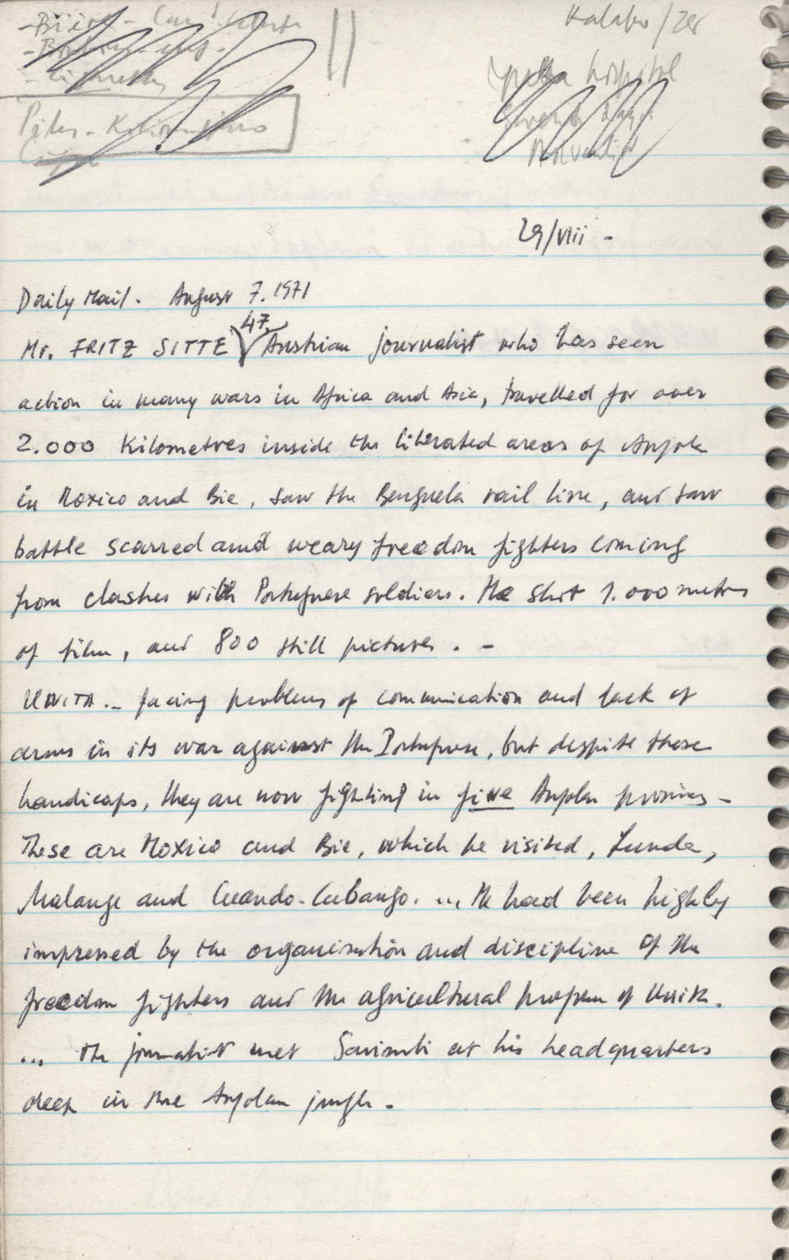 Kalabo /
Hospital
29/VIII -
Daily Mail. August 7. 1971
Mr. FRITZ SITTE 47, Austrian journalist who has seen
action in many wars in Africa and Asia, travelled for over
2.000 Kilometres inside the liberated areas of Angola
in Moxico and Bie, saw the Benguela rail line, and saw
battle scarred and weary freedom fighters coming
from clashes with Portuguese soldiers. He shot 1.000 metres
of film, and 800 still pictures. -
UNITA - facing problems of communication and lack of
arms in its war against the Portuguese, but despite these
handicaps, they are now fighting in five Angolan provinces -
These are Moxico and Bie, which he visited, Lunda,
Malange and Cuando-Cubango. ... He had been highly
impressed by the organisation and discipline of the
freedom fighters and the agricultural program of Unita.
... the journalist met Savimbi at his headquarters
deep in the Angolan jungle -